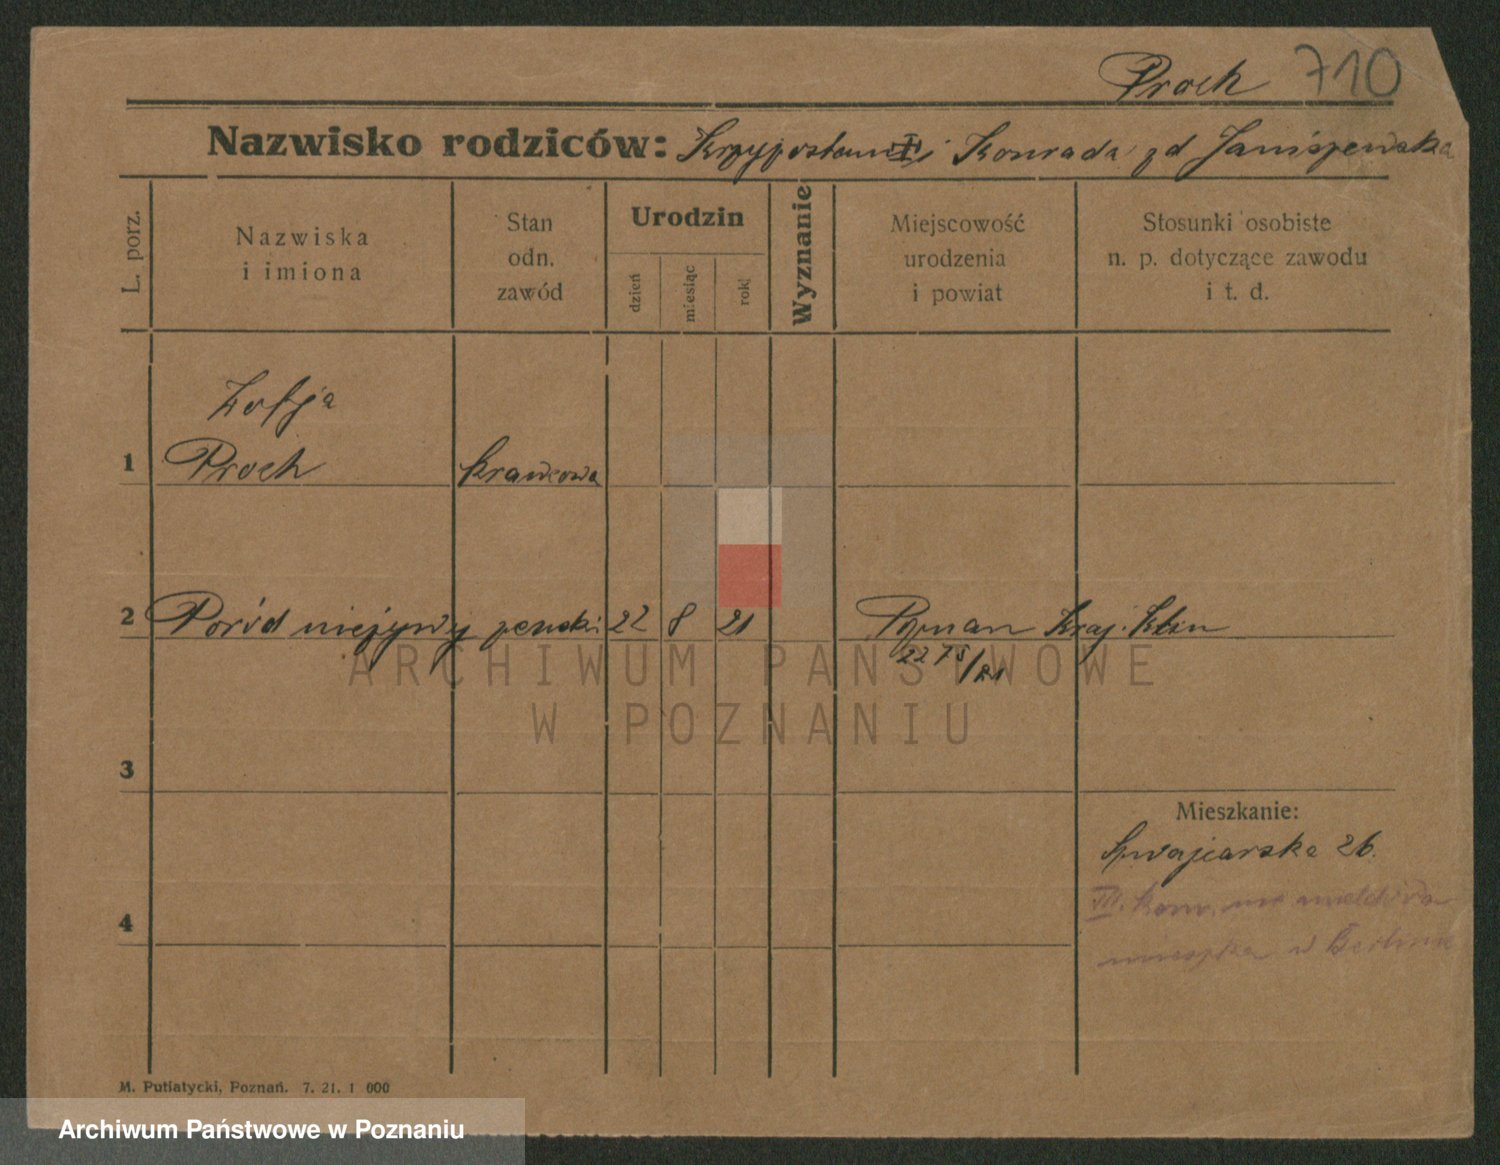 Proch 710
Nazwisko rodziców: i Konrada zd Janiszewska
L. porz.
Nazwiska
i imiona
Stan
odn.
zawód
Urodzin
dzień
miesiąc
rok
Wyznanie
Miejscowość
urodzenia
i powiat
Stosunki osobiste
n. p. dotyczące zawodu
i t. d.
Zofja
1 Proch krawcowa
2 Poród nieżywy żeński 22 8 21 Poznan Kraj. Klin
2275/21
ARCHIWUM PAŃSTWOWE
W POZNANIU
3
Mieszkanie:
Szwajcarska 26.
4
III. w
mieszka w Berlinie
M. Putiatycki, Poznań. 7. 21. 1 000
Archiwum Państwowe w Poznaniu